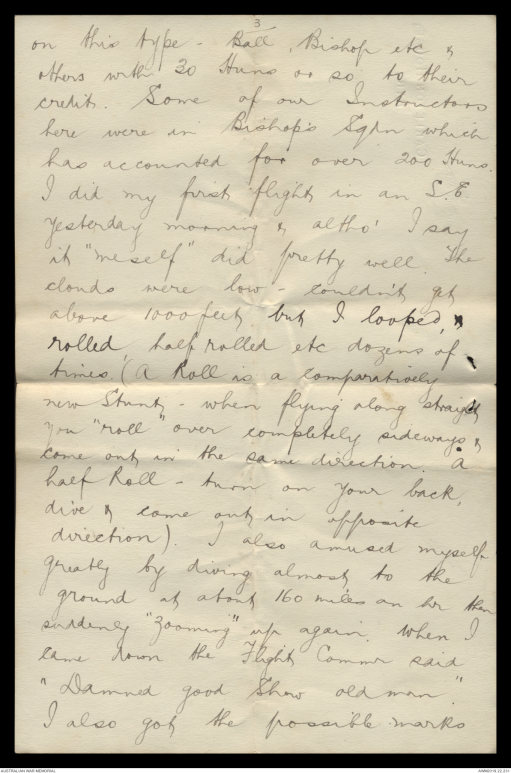 3
on this type - Ball, Bishop etc &
others with 30 Huns or so to their
credit. Some of our Instructors
here were in Bishop's Sqdn which
has accounted for over 200 Huns.
I did my first flight in an S.E.
yesterday morning & altho' I say
it "meself" did pretty well. The
clouds were low - couldn't get
above 1000 feet, but I looped, &
rolled, half rolled etc dozens of
times. (A Roll is a comparatively
new Stunt - when flying along straight
you "roll" over completely sideways &
come out in the same direction. A
half Roll - turn on your back,
dive & come out in opposite
direction). I also amused myself
greatly by diving almost to the
ground at about 160 miles an hr then
suddenly "zooming" up again. When I
came down the Flight Commr said
"Damned good Show old man."
I also got the possible marks
AUSTRALIAN WAR MEMORIAL